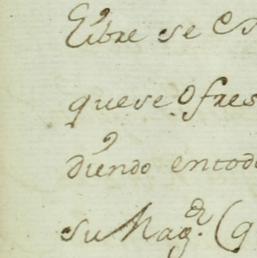 Libre se es
quese ofres
diendo entod
su Mag.d (q